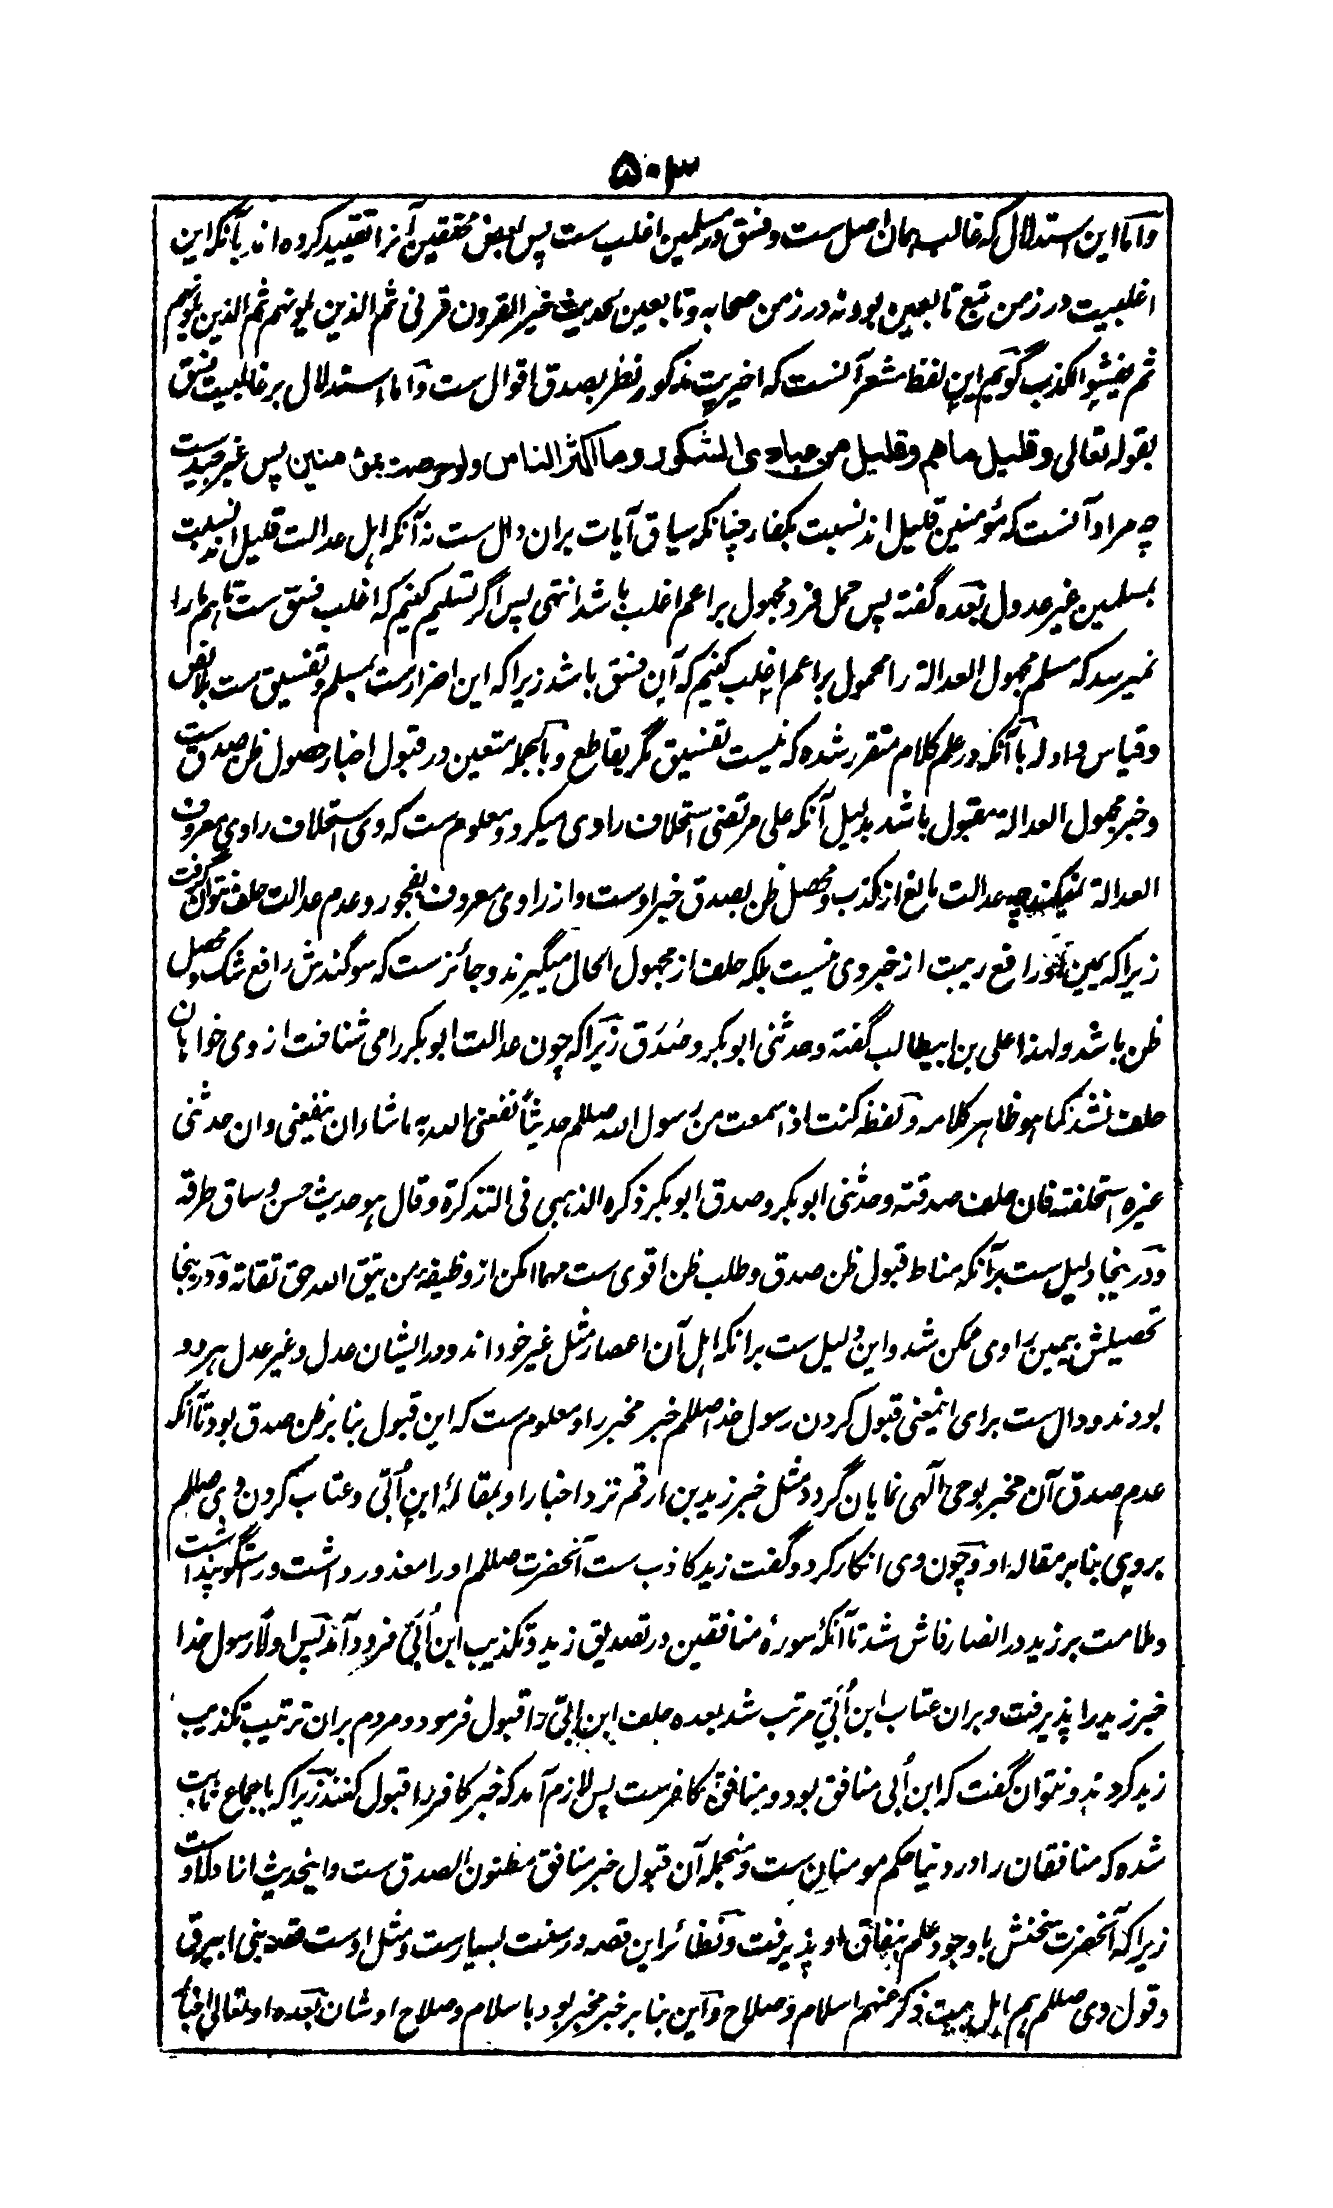 ۵۰۳
واما این استدلال که غالب همان اصل ست و فسق در مسلمین اغلب ست پس بعض محققین آنرا تقیید کرده اند بآنکه این
اغلبیت در زمن تبع تابعین بود نه در زمن صحابه و تابعین لحدیث خیر القرون قرنی ثم الذین یلونهم ثم الذین یلونهم
ثم یفشو الکذب گویم این لفظ مشعر آنست که اخیریت مذکور نظر بصدق اقوال ست و اما استدلال بر غالبیت فسق
بقوله تعالی وقلیل ما هم وقلیل من عبادی الشکور وما اکثر الناس ولو حرصت بمؤمنین پس غیر جید ست
چه مراد آنست که مؤمنین قلیل اند نسبت بکفار چنانکه سیاق آیات بران دال ست نه آنکه اهل عدالت قلیل اند نسبت
بمسلمین غیر عدول بعده گفته پس حمل فرد مجهول بر اعم اغلب باشد انتهی پس اگر تسلیم کنیم که اغلب فسق ست تاهم ما را
نمیرسد که مسلم مجهول العدالة را محمول بر اعم اغلب کنیم که آن فسق باشد زیرا که این اضرار ست بمسلم و تفسیق ست بلا نص
وقیاس و ادله با آنکه در علم کلام متقرر شده که نیست تفسیق مگر بقاطع و بالجمله متعین در قبول اخبار حصول ظن صدق ست
وخبر مجهول العدالة مقبول باشد بدلیل آنکه علی مرتضی استحلاف راوی میکرد و معلوم ست که وی استحلاف راوی معروف
العدالة نمیکند چه عدالت مانع از کذب و محصل ظن بصدق خبر اوست و از راوی معروف بفجور و عدم عدالت حلف نتوان گرفت
زیرا که یمین رافع ریبت از خبر وی نیست بلکه حلف از مجهول الحال میگیرند و جائز ست که سوگندش رافع شک و محصل
ظن باشد ولهذا علی بن ابیطالب گفته وحدثنی ابوبکر وصدق زیرا که چون عدالت ابوبکر را می شناخت از وی خواهان
حلف نشد کما هو ظاهر کلامه ولفظه کنت اذا سمعت من رسول الله صللم حدیثاً نفعنی الله به ما شاء ان ینفعنی وان حدثنی
غیره استحلفته فان حلف صدقته وحدثنی ابوبکر وصدق ابوبکر ذکره الذهبی فی التذکرة وقال هو حدیث حسن وساق طرقه
ودرینجا دلیل ست برآنکه مناط قبول ظن صدق و طلب ظن اقوی ست مهما امکن از وظیفه من یتق الله حق تقاته و درینجا
تحصیلش بیمین راوی ممکن شد و این دلیل ست برانکه اهل آن اعصار مثل غیر خود اند و در ایشان عدل و غیر عدل هر دو
بودند و دال ست برای اینمعنی قبول کردن رسول خدا صللم خبر مخبر را و معلوم ست که این قبول بنا بر ظن صدق بود تا آنکه
عدم صدق آن مخبر بوحی الٓهی نمایان گردد مثل خبر زید بن ارقم نزد اخبار او بمقالۀ ابن اُبّی و عتاب کردن وی صللم
بروی بنابر مقاله او و چون وی انکار کرد و گفت زید کاذب ست آنحضرت صللم او را معذور داشت و راستگو پنداشت
و ملامت بر زید در انصار فاش شد تا آنکه سورۀ منافقین در تصدیق زید و تکذیب ابن اُبَی فرود آمد پس اولاً رسول خدا
خبر زید را پذیرفت و بران عتاب ابن اُبَی مرتب شد بعده حلف ابن ابی را قبول فرمود و مردم بران ترتیب تکذیب
زید کردند و نتوان گفت که ابن اُبی منافق بود و منافق کافر ست پس لازم آمد که خبر کافر را قبول کنند زیرا که باجماع ثابت
شده که منافقان را در دنیا حکم مومنان ست و منجمله آن قبول خبر منافق مظنون الصدق ست و اینحدیث از ادله اوست
زیرا که آنحضرت سخنش باوجود علم بنفاق او پذیرفت و نظائر این قصه در سنت بسیار ست و مثل اوست قصه بنی ابیرق
وقول وی صللم هم اهل بیت ذکر عنهم اسلام وصلاح و این بنا بر خبر مخبر بود باسلام و صلاح اوشان بعده او تعالی